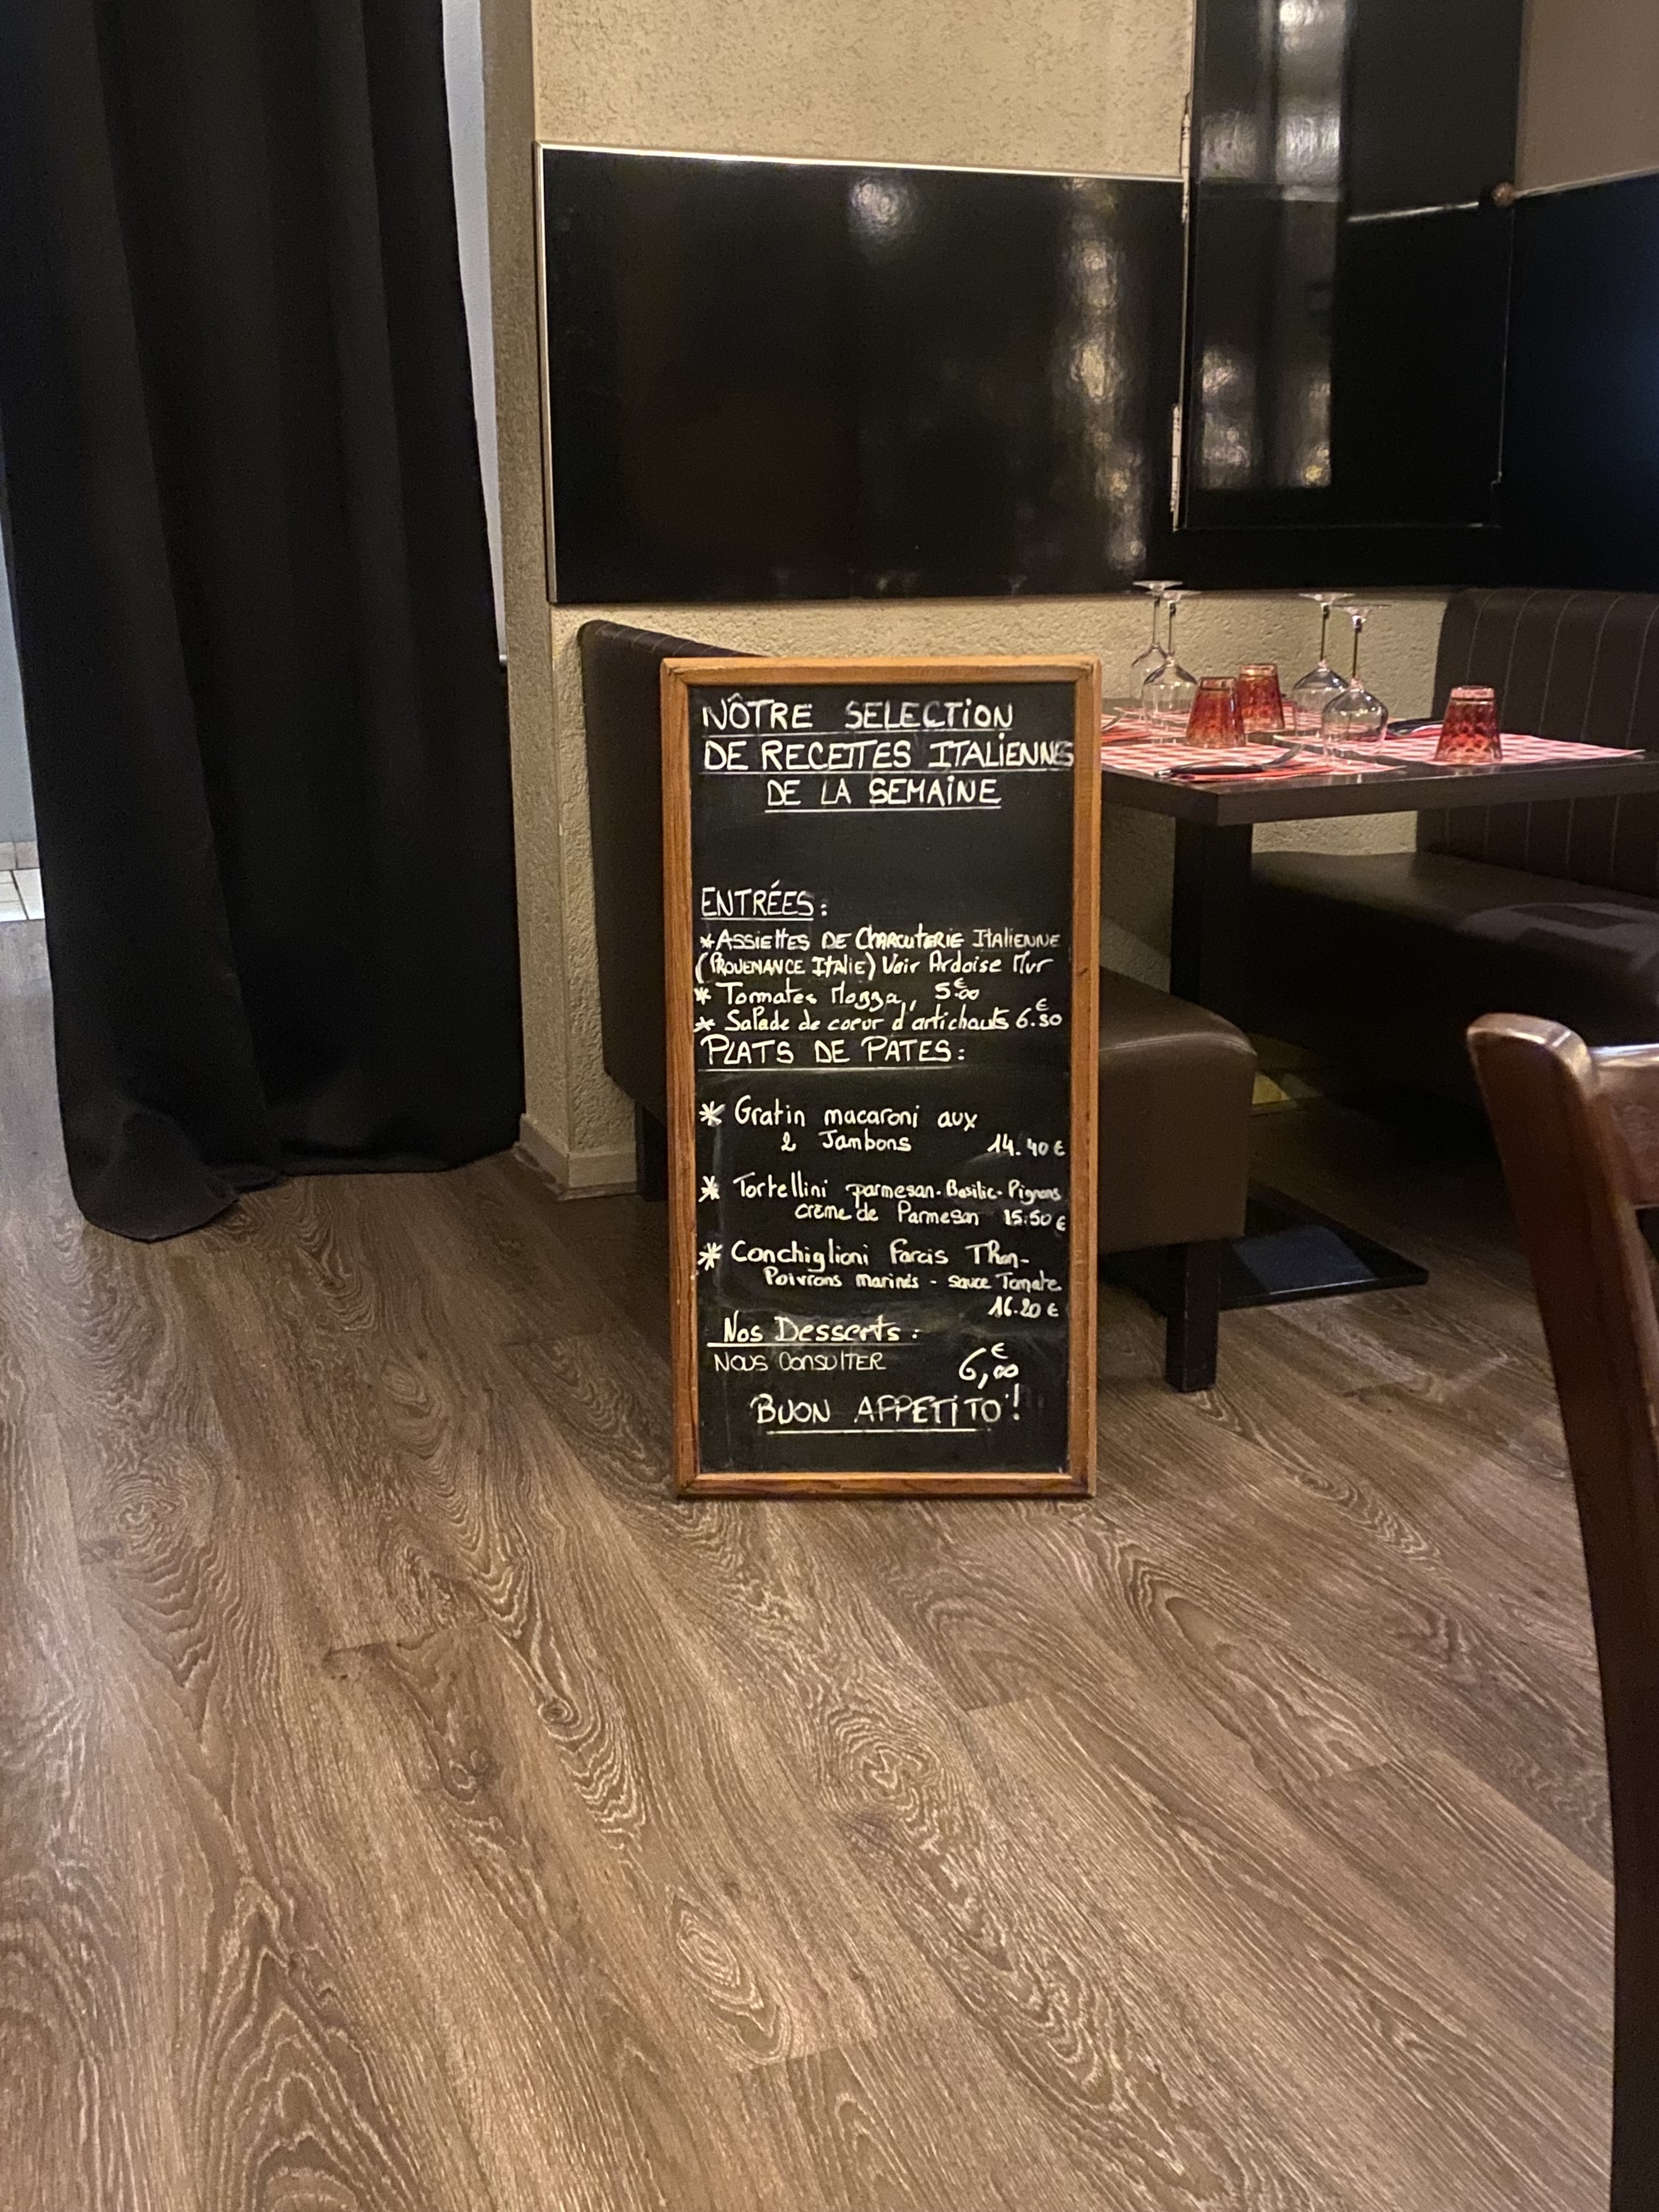 NÔTRE SELECTION
DE RECETTES ITALIENNES
DE LA SEMAINE
ENTRÉES :
* ASSIETTES DE CHARCUTERIE ITALIENNE
(PROVENANCE ITALIE) Voir Ardoise Mur
* Tomates Mozza, 5€00
* Salade de coeur d'artichauts 6.€50
PLATS DE PATES :
* Gratin macaroni aux
2 Jambons 14.40 €
* Tortellini parmesan - Basilic - Pignons
crème de Parmesan 15.50 €
* Conchiglioni Farcis Thon -
Poivrons marinés - sauce Tomate
16.20 €
Nos Desserts :
NOUS CONSULTER 6,€00
BUON APPETITO !